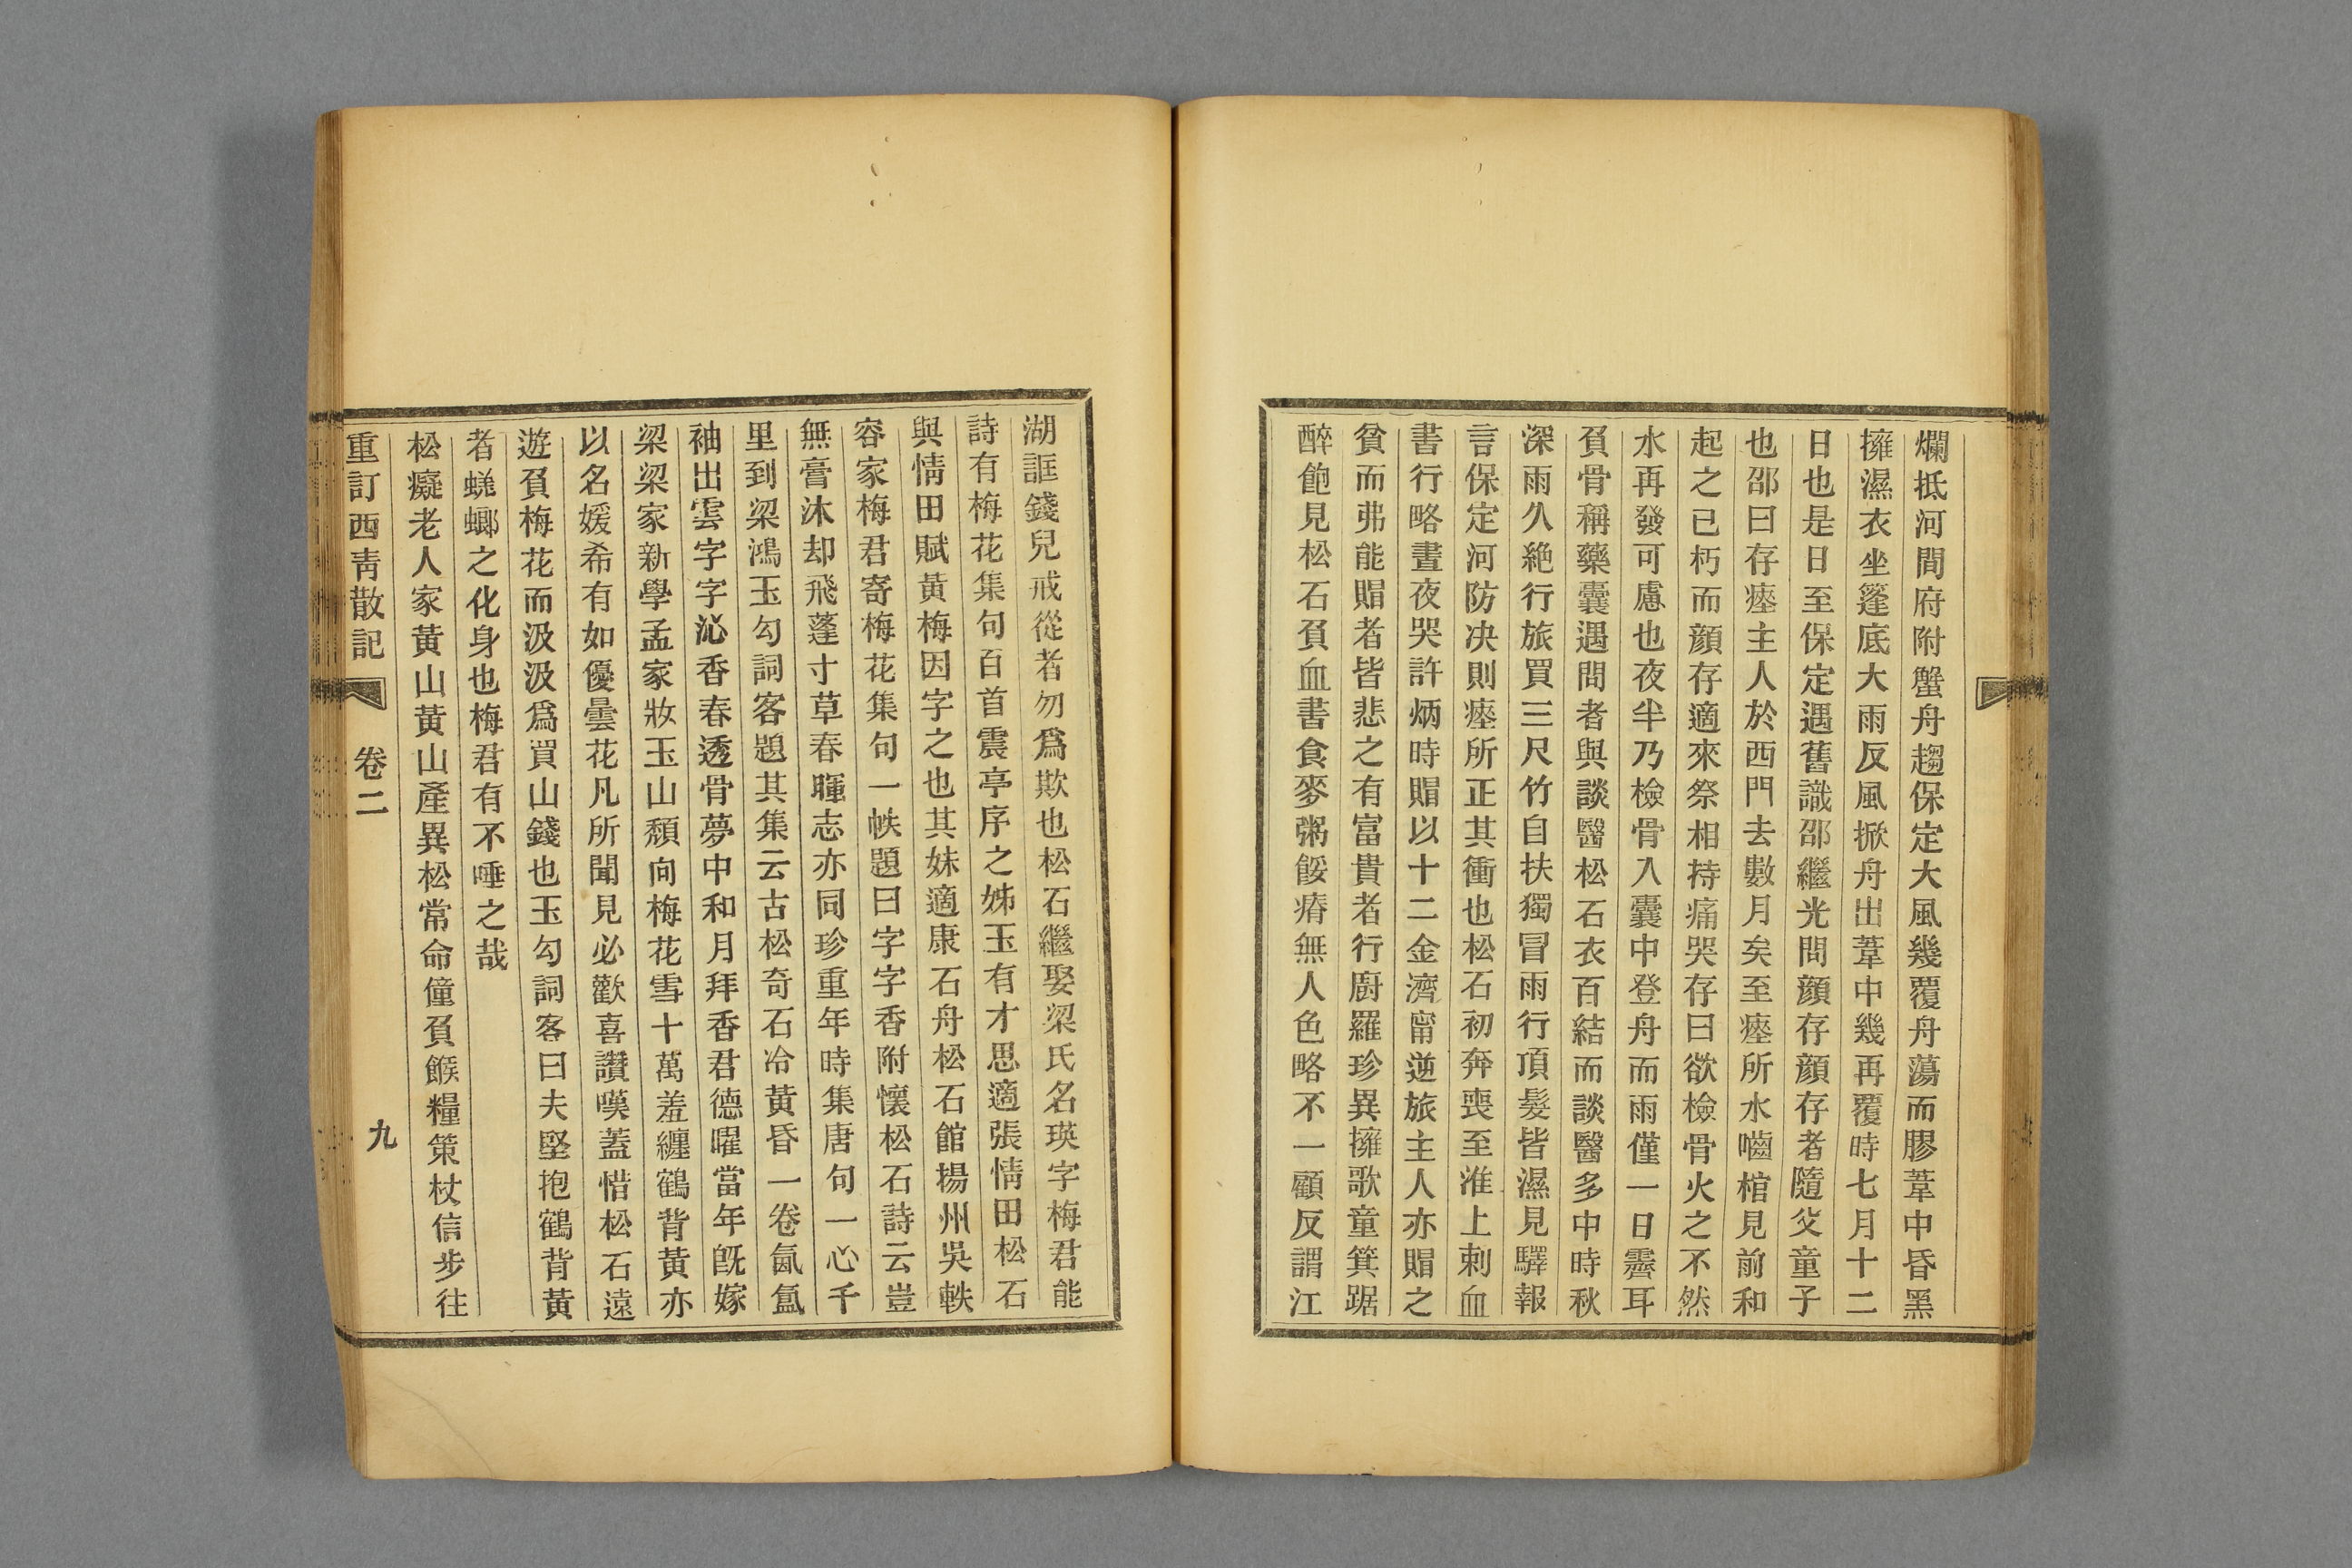 爛抵河間府附蟹舟趨保定大風幾覆舟蕩而膠葦中昏黑
擁濕衣坐篷底大雨反風掀舟出葦中幾再覆時七月十二
日也是日至保定遇舊識邵繼光問顔存顔存者隨父童子
也邵曰存瘞主人於西門去數月矣至瘞所水嚙棺見前和
起之已朽而顔存適來祭相持痛哭存曰欲檢骨火之不然
水再發可慮也夜半乃檢骨入囊中登舟而雨僅一日霽耳
負骨稱藥囊遇問者與談醫松石衣百結而談醫多中時秋
深雨久絶行旅買三尺竹自扶獨冒雨行頂髮皆濕見驛報
言保定河防決則瘞所正其衝也松石初奔喪至淮上刺血
書行略晝夜哭許炳時賵以十二金濟甯逆旅主人亦賵之
貧而弗能賵者皆悲之有富貴者行廚羅珍異擁歌童箕踞
醉飽見松石負血書食麥粥餒瘠無人色略不一顧反謂江
湖誆錢兒戒從者勿爲欺也松石繼娶梁氏名瑛字梅君能
詩有梅花集句百首震亭序之姊玉有才思適張情田松石
與情田賦黃梅因字之也其妹適康石舟松石館揚州吳軼
容家梅君寄梅花集句一帙題曰字字香附懷松石詩云豈
無膏沐却飛蓬寸草春暉志亦同珍重年時集唐句一心千
里到梁鴻玉勾詞客題其集云古松奇石冷黃昏一卷氤氳
袖出雲字字沁香春透骨夢中和月拜香君德曜當年旣嫁
梁梁家新學孟家妝玉山頹向梅花雪十萬羞纏鶴背黃亦
以名媛希有如優曇花凡所聞見必歡喜讚嘆蓋惜松石遠
遊負梅花而汲汲爲買山錢也玉勾詞客曰夫堅抱鶴背黃
者蜣螂之化身也梅君有不唾之哉
松癡老人家黃山黃山產異松常命僮負餱糧策杖信步往
重訂西青散記 卷二 九